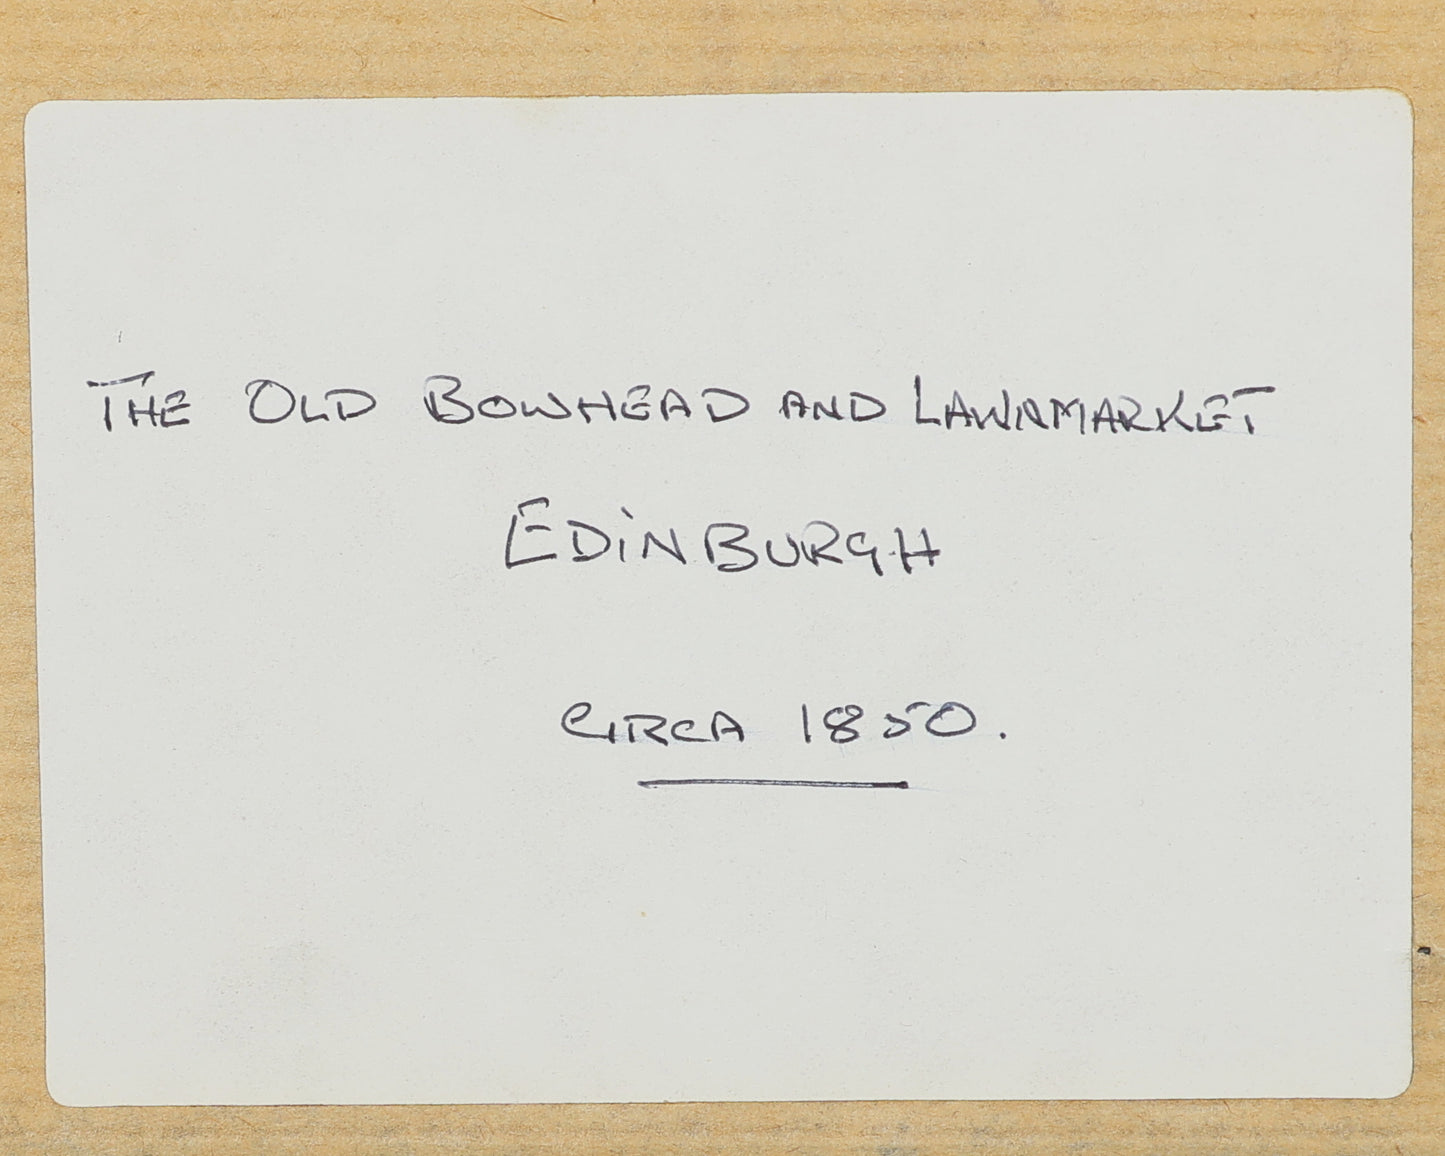 THE OLD BOWHEAD AND LAWNMARKET
EDINBURGH
CIRCA 1850.